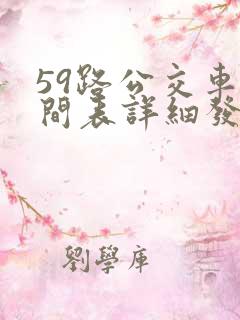 59路公交車
間表詳細發
劉學庫